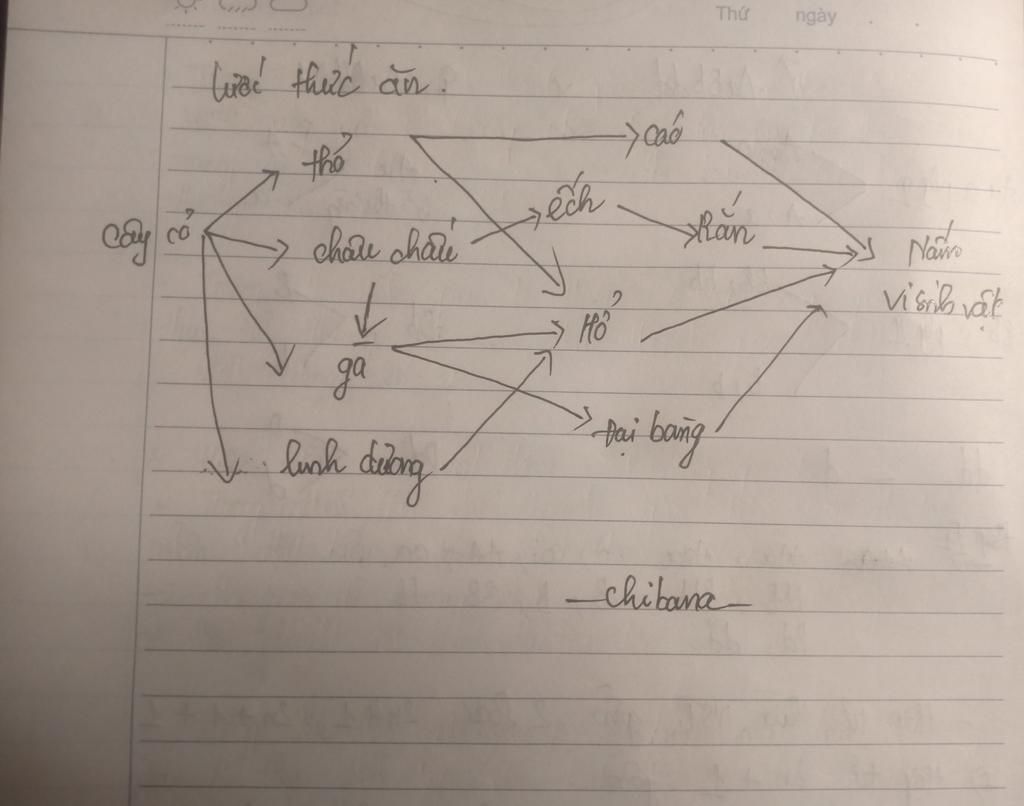 Thứ ngày . .
lưới thức ăn.
thỏ
cáo
cây cỏ
châu chấu
ếch
Rắn
Nấm
vi sinh vật
gà
Hổ
linh dương
Đại bàng
— chibana —